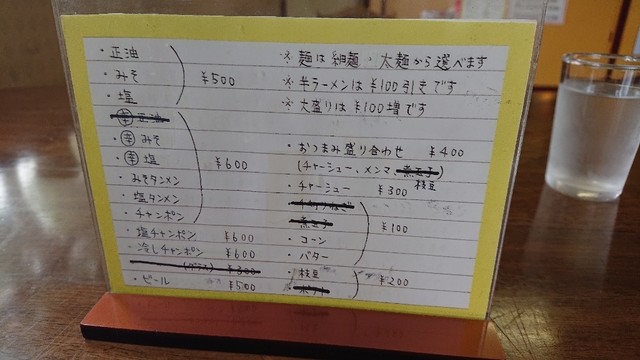 ・正油
・みそ
・塩
¥500
㊛正油
・㊛みそ
・㊛塩
・みそタンメン
・塩タンメン
・チャンポン
¥600
・塩チャンポン ¥600
・冷しチャンポン ¥600
(グラス) ¥300
・ビール ¥500
※ 麺は細麺・太麺から選べます
※ 半ラーメンは¥100引きです
※ 大盛りは¥100増です
・おつまみ盛り合わせ ¥400
(チャーシュー、メンマ、煮玉子)
枝豆
・チャーシュー ¥300
煮玉子
・コーン
・バター
¥100
・枝豆
¥200